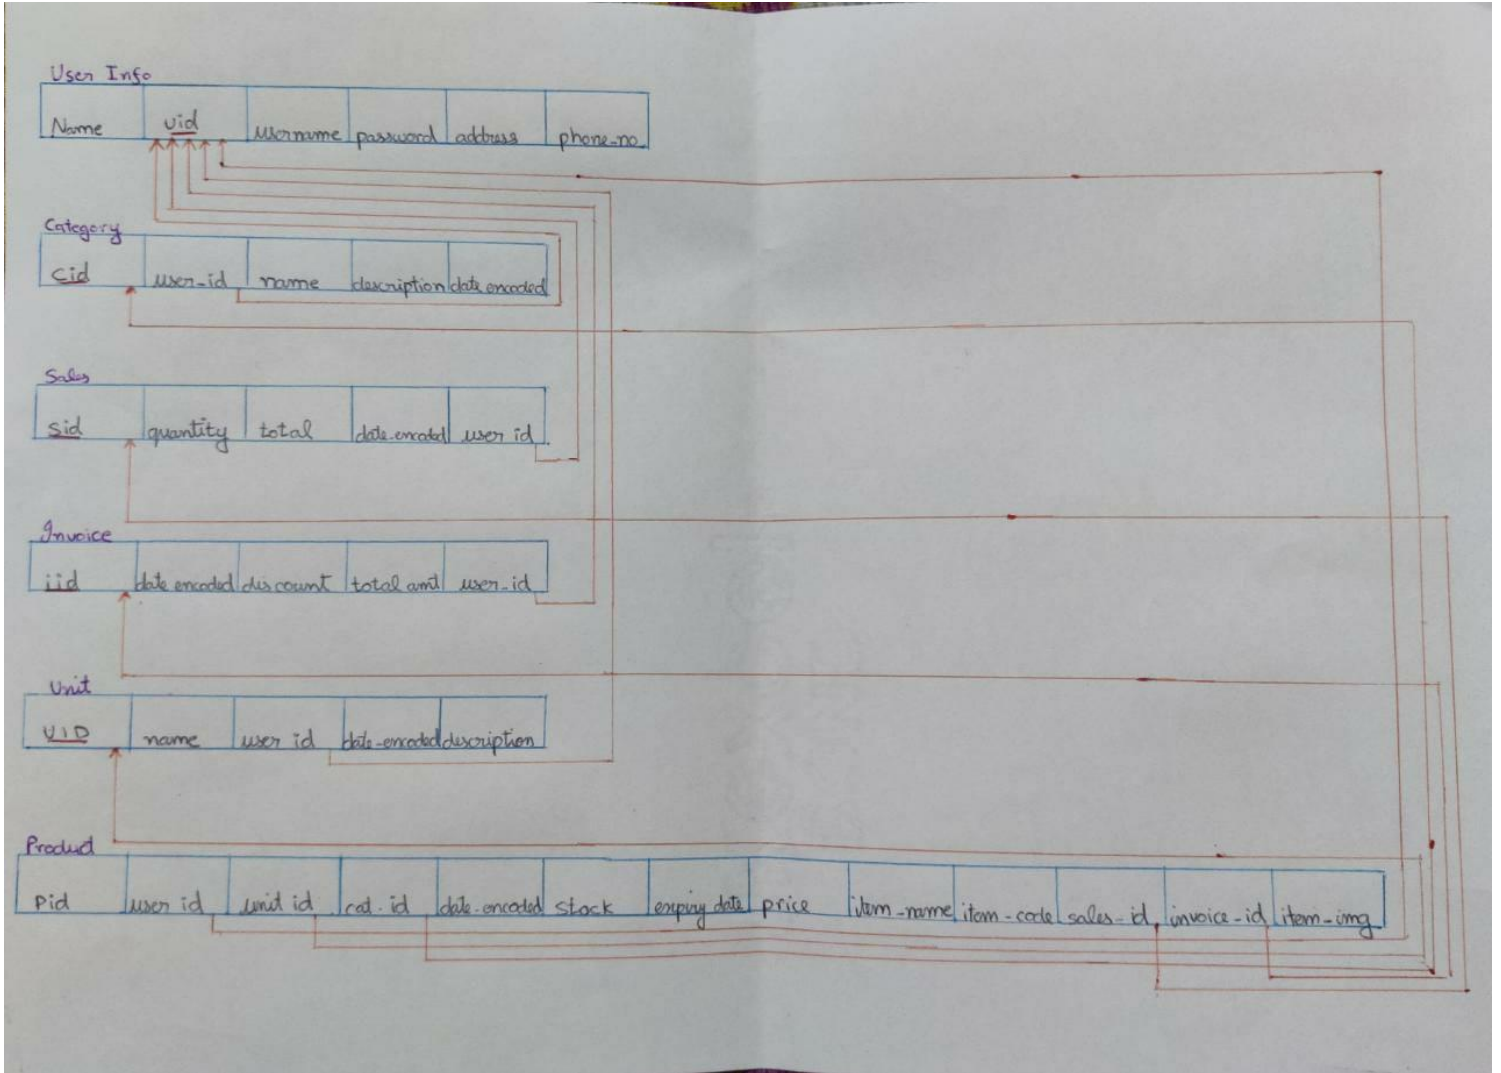 User Info
Name uid username password address phone-no
Category
cid user-id name description date encoded
Sales
sid quantity total date-encoded user id
Invoice
iid date encoded discount total amt user-id
Unit
UID name user id date-encoded description
Product
Pid user id unit id cat.id date-encoded stock expiry date price item-name item-code sales-id invoice-id item-img